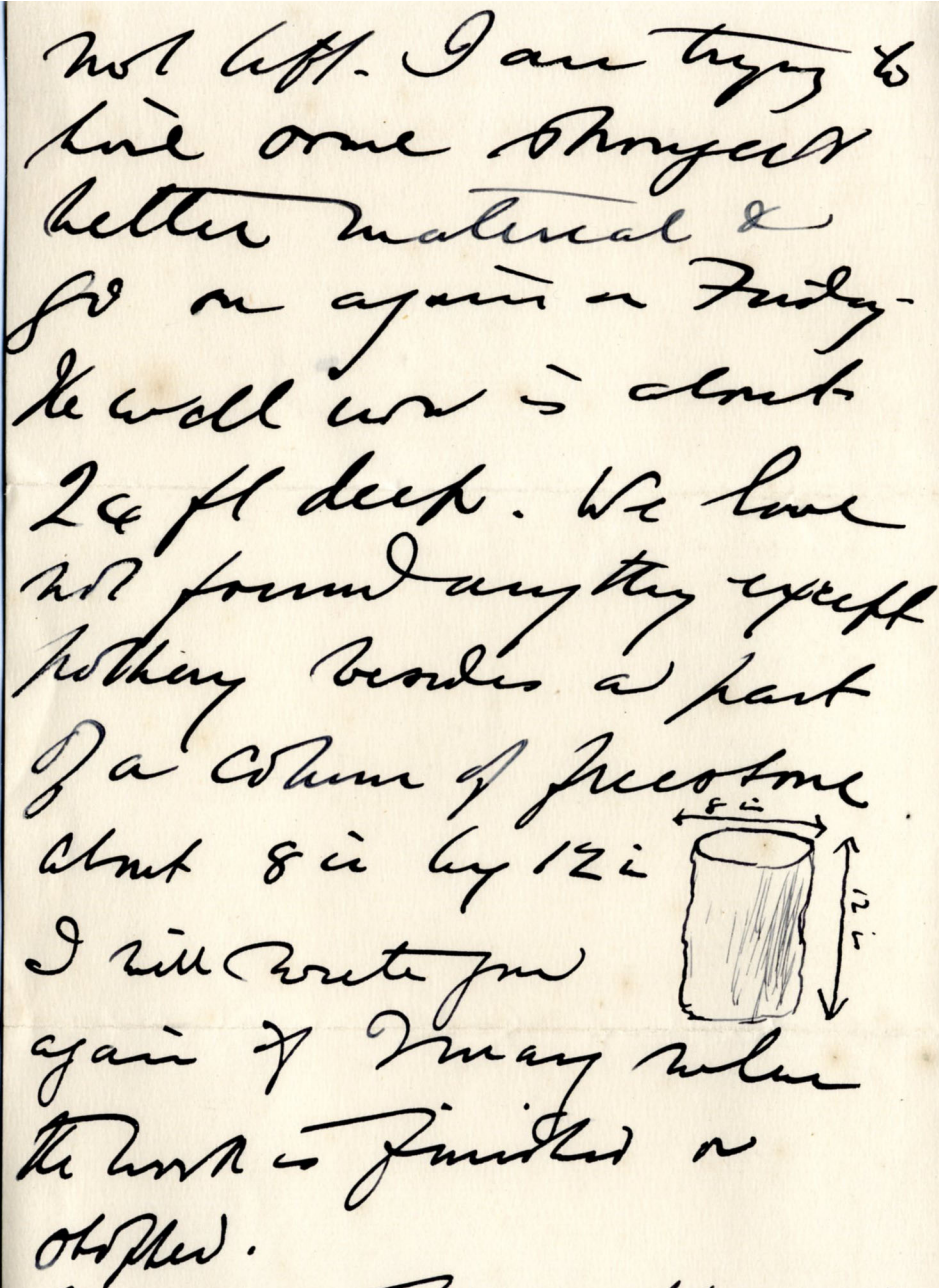 not I am trying to
hire some stronger &
better material &
go on again on Friday-
The well now is about
24 ft deep. We have
not found anything except
pottery besides a part
of a column of freestone
8 in
about 8 in by 12 in
12 in
I will write you
again if I may when
the work is finished or
stopped.